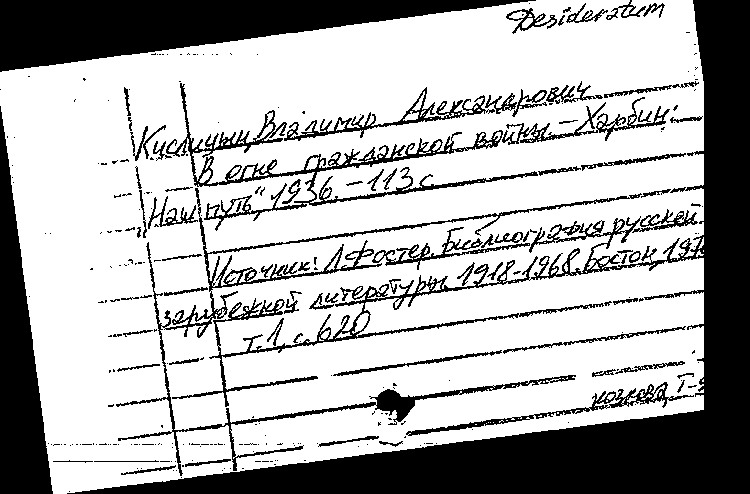 Desideratum
Кислицын, Владимир Александрович
В огне гражданской войны. – Харбин:
„Наш путь“, 1936. – 113 с
Источник: Л. Фостер. Библиография русской
зарубежной литературы 1918-1968. Бостон, 197
т. 1, с. 620